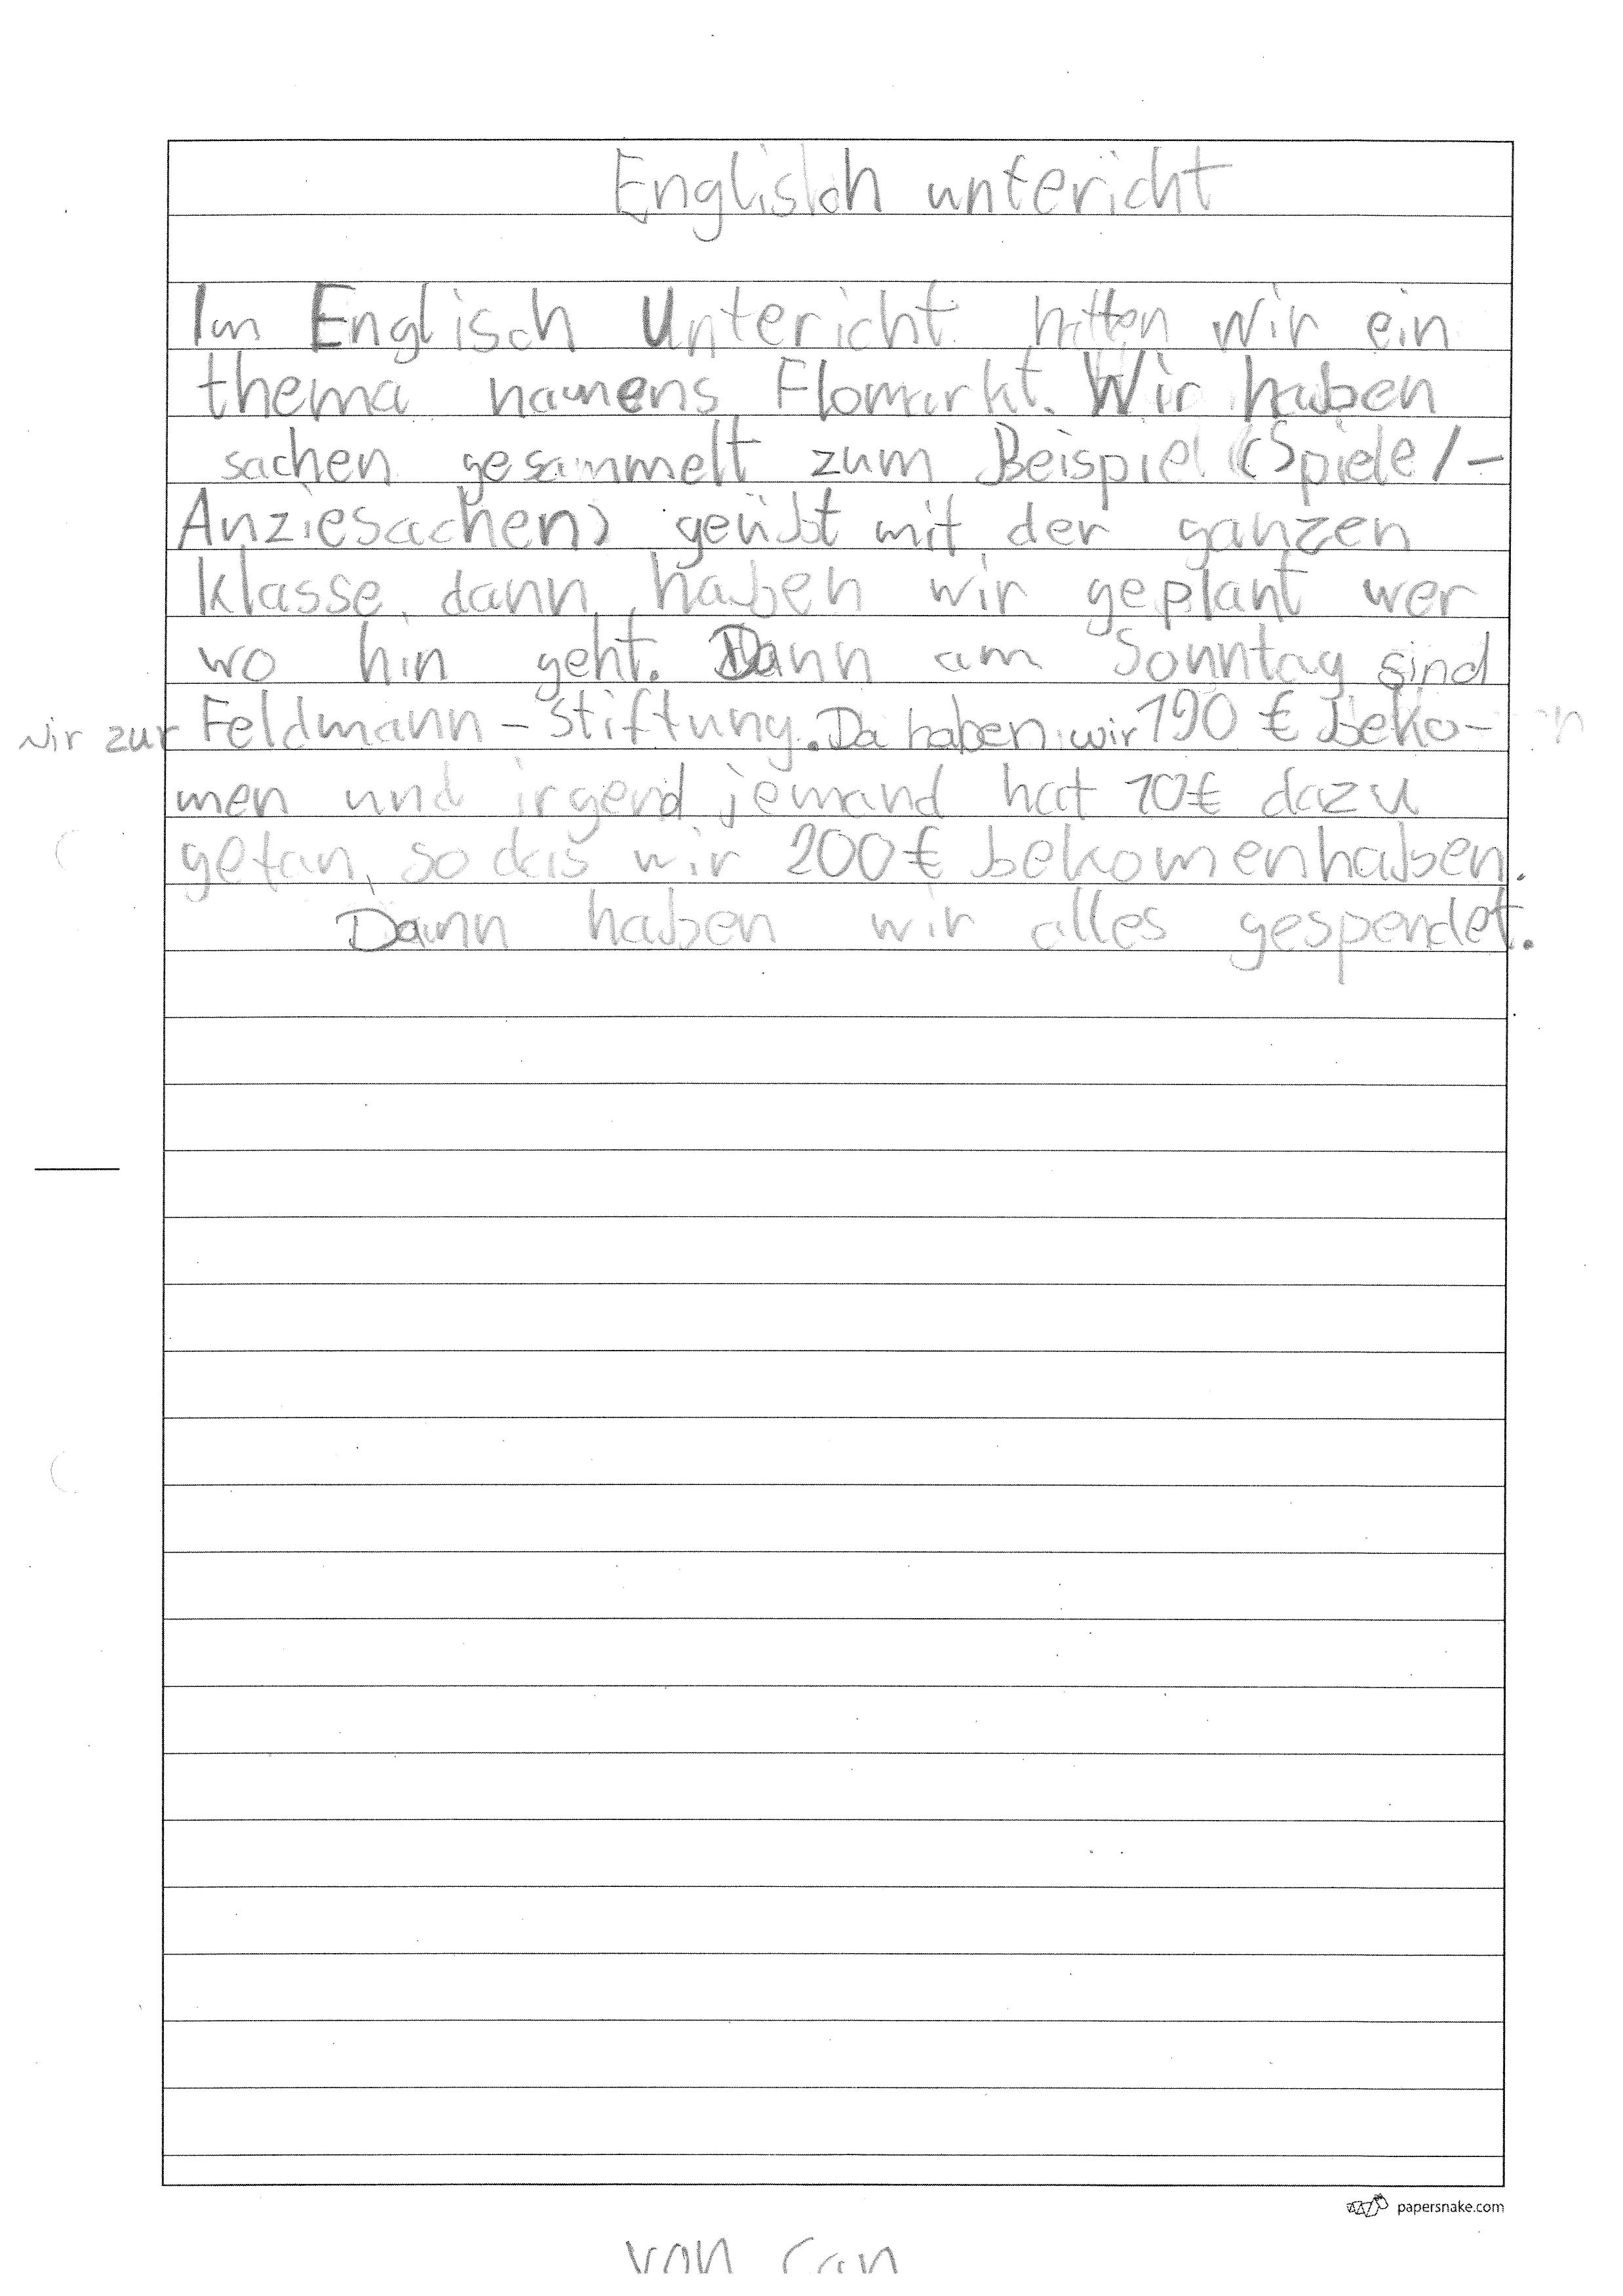 Englisch untericht
Im Englisch Untericht hatten wir ein
thema namens Flomarkt. Wir haben
sachen gesammelt zum Beispiel (Spiele/-
Anziesachen) geübt mit der ganzen
klasse, dann haben wir geplant wer
wo hin geht. Dann am Sonntag sind
wir zur Feldmann-Stiftung. Da haben wir 190 € beko-
men und irgend jemand hat 10€ dazu
getan, so das wir 200€ bekomenhaben.
Dann haben wir alles gespendet.
papersnake.com
von Can